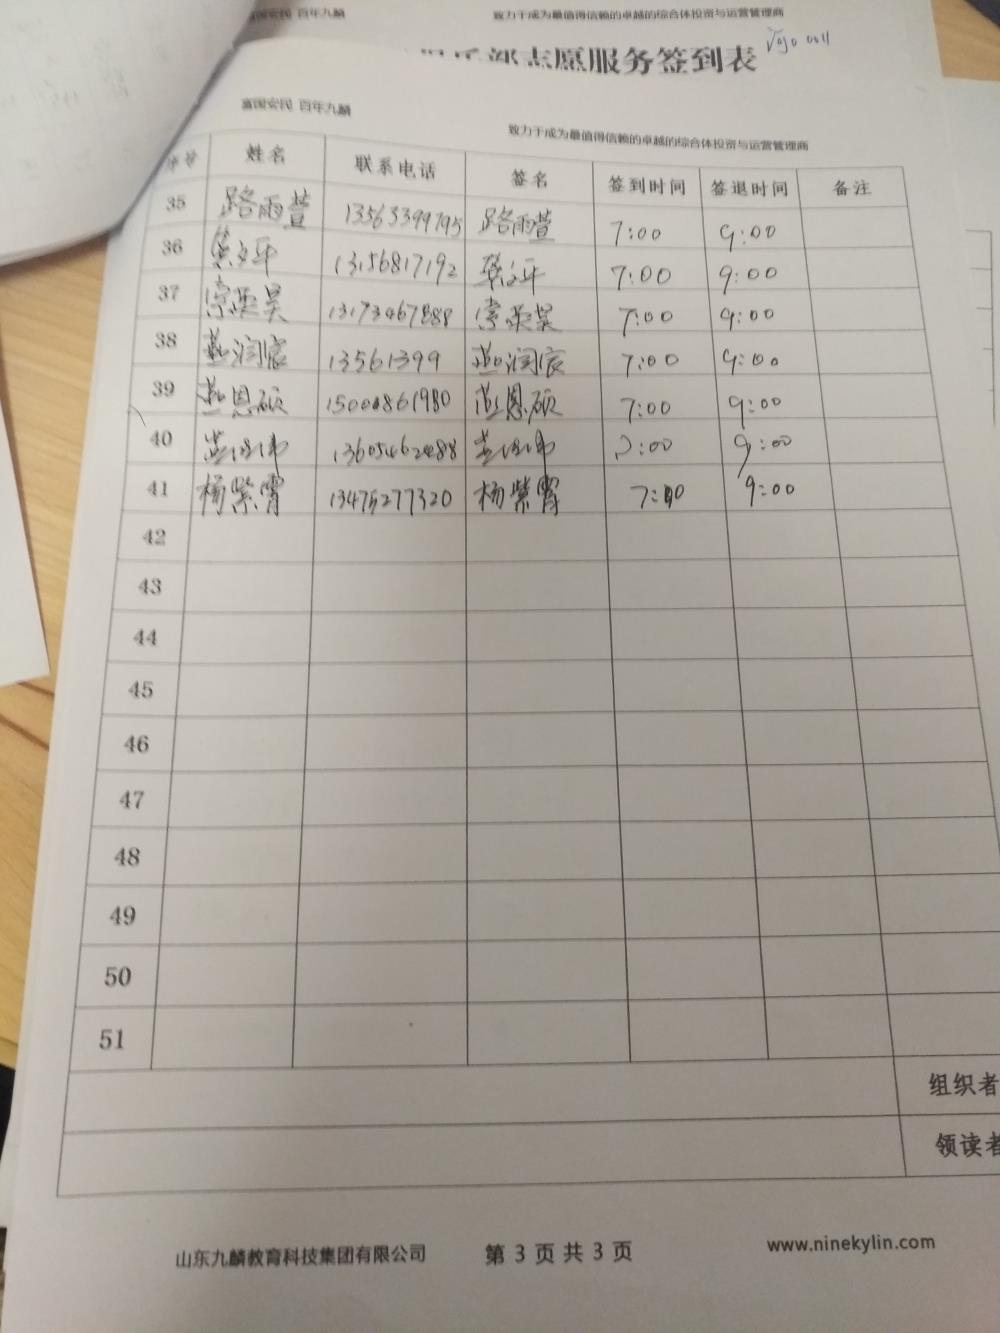 富国安民 百年九麟
致力于成为最值得信赖的卓越的综合体投资与运营管理商
部志愿服务签到表
富国安民 百年九麟
致力于成为最值得信赖的卓越的综合体投资与运营管理商
序号 姓名 联系电话 签名 签到时间 签退时间 备注
35 路雨萱 13563399795 路雨萱 7:00 9:00
36 13156817192 7:00 9:00
37 13173467888 7:00 9:00
38 13561399 7:00 9:00
39 恩硕 15000861980 恩硕 7:00 9:00
40 13605462488 :00 9:00
41 杨紫霄 13475277320 杨紫霄 7:00 9:00
42
43
44
45
46
47
48
49
50
51
组织者
领读者
山东九麟教育科技集团有限公司 第 3 页 共 3 页 www.ninekylin.com